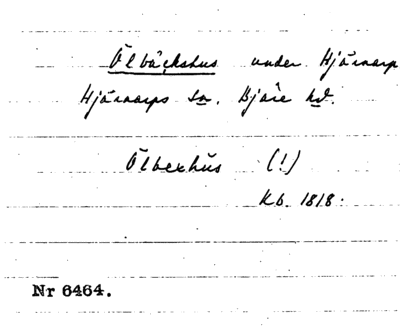 Ölbäckshus under Hjärnarp
Hjärnarps sn. Bjäre hd.
Ölbexhús (!)
Kb. 1818.
Nr 6464.